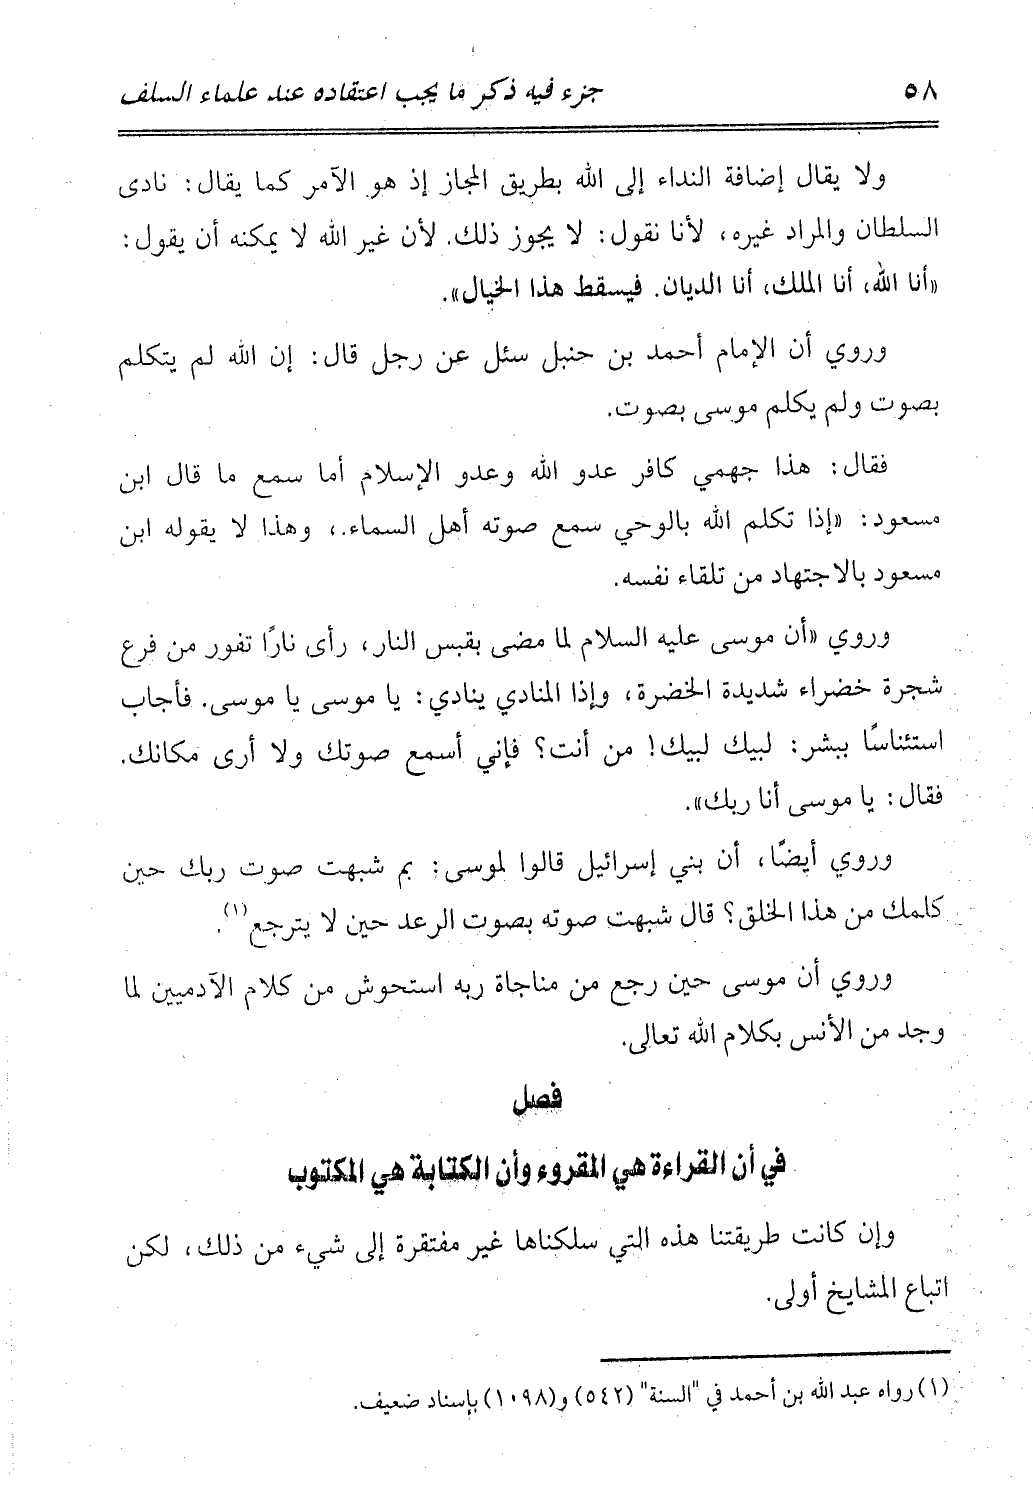 ٥٨
جزء فيه ذكر ما يجب اعتقاده عند علماء السلف
ولا يقال إضافة النداء إلى الله بطريق المجاز إذ هو الآمر كما يقال: نادى
السلطان والمراد غيره، لأنا نقول: لا يجوز ذلك. لأن غير الله لا يمكنه أن يقول:
«أنا الله، أنا الملك، أنا الديان. فيسقط هذا الخيال».
وروي أن الإمام أحمد بن حنبل سئل عن رجل قال: إن الله لم يتكلم
بصوت ولم يكلم موسى بصوت.
فقال: هذا جهمي كافر عدو الله وعدو الإسلام أما سمع ما قال ابن
مسعود: «إذا تكلم الله بالوحي سمع صوته أهل السماء.، وهذا لا يقوله ابن
مسعود بالاجتهاد من تلقاء نفسه.
وروي «أن موسى عليه السلام لما مضى بقبس النار، رأى نارًا تفور من فرع
شجرة خضراء شديدة الخضرة، وإذا المنادي ينادي: يا موسى يا موسى. فأجاب
استئناسًا ببشر: لبيك لبيك! من أنت؟ فإني أسمع صوتك ولا أرى مكانك.
فقال: يا موسى أنا ربك».
وروي أيضًا، أن بني إسرائيل قالوا لموسى: بم شبهت صوت ربك حين
كلمك من هذا الخلق؟ قال شبهت صوته بصوت الرعد حين لا يترجع(١).
وروي أن موسى حين رجع من مناجاة ربه استحوش من كلام الآدميين لما
وجد من الأنس بكلام الله تعالى.
فصل
في أن القراءة هي المقروء وأن الكتابة هي المكتوب
وإن كانت طريقتنا هذه التي سلكناها غير مفتقرة إلى شيء من ذلك، لكن
اتباع المشايخ أولى.
(١) رواه عبد الله بن أحمد في "السنة" (٥٤٢) و(١٠٩٨) بإسناد ضعيف.